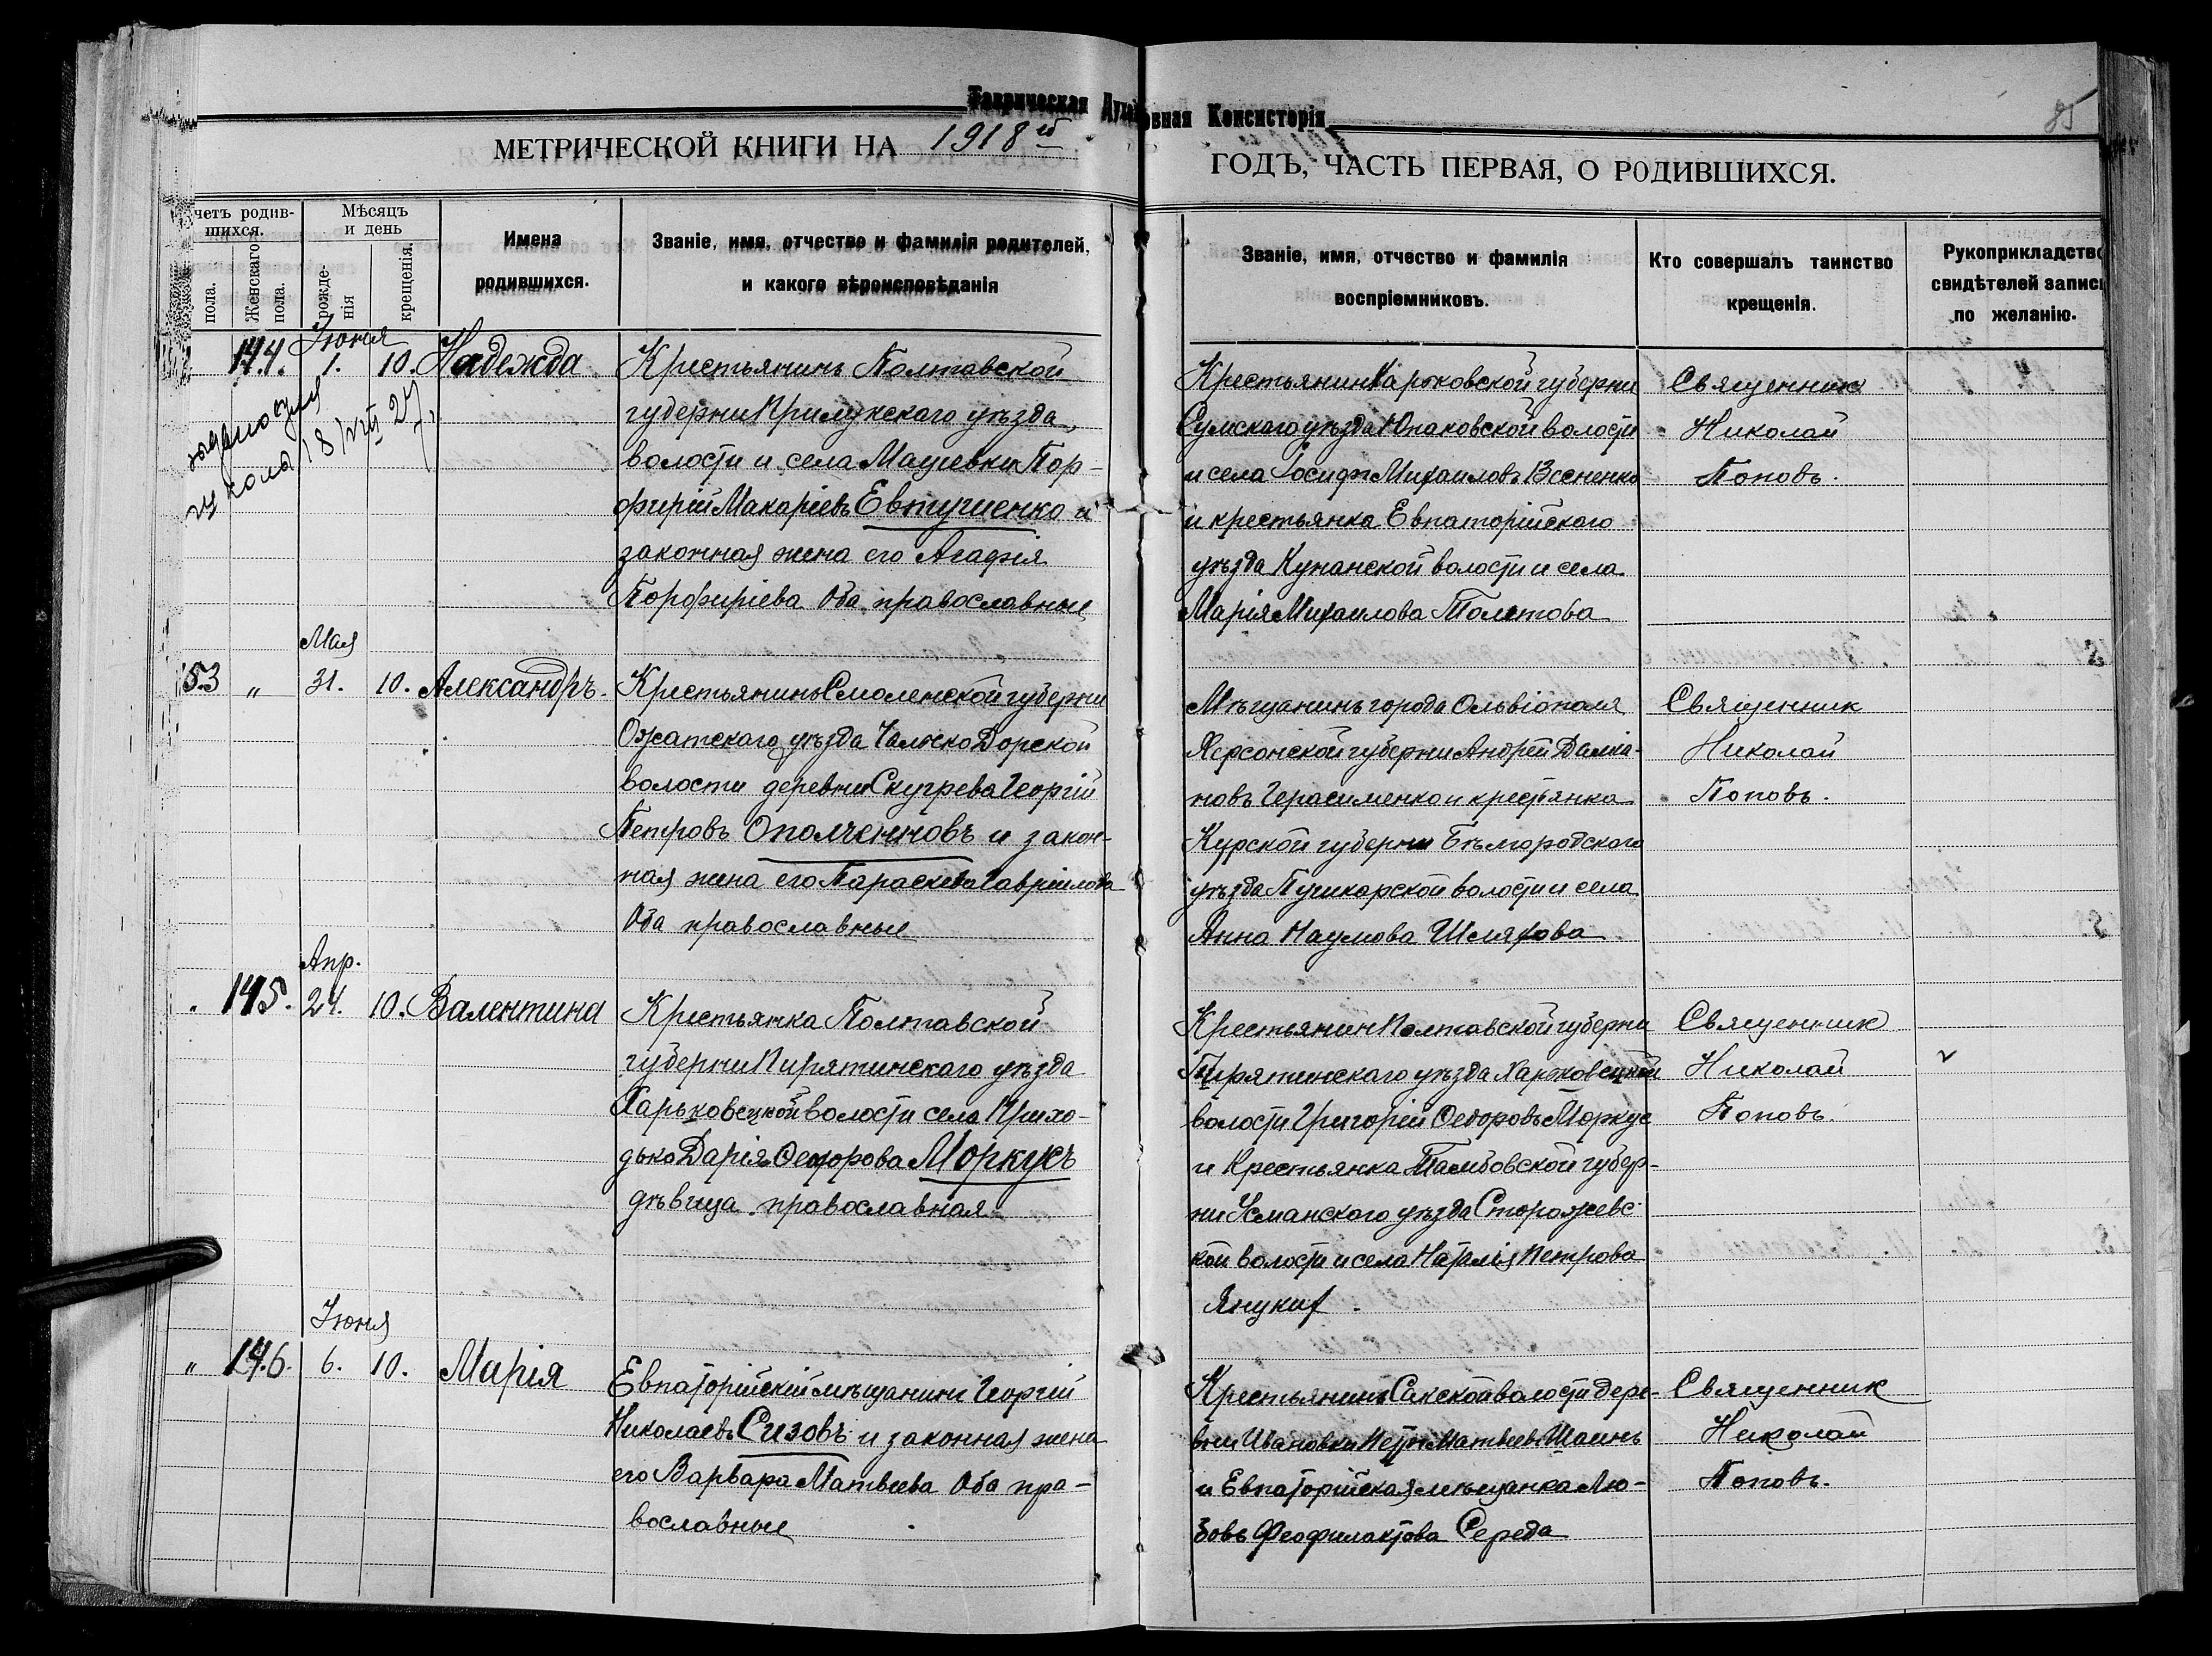 Таврическая Духовная Консисторія
85
МЕТРИЧЕСКОЙ КНИГИ НА 1918й ГОДЪ, ЧАСТЬ ПЕРВАЯ, О РОДИВШИХСЯ.
четъ родив-
шихся.
пола.
Женскаго
пола.
Мѣсяцъ
и день
рожде-
нія
крещенія.
Имена
родившихся.
Званіе, имя, отчество и фамилія родителей,
и какого вѣроисповѣданія
Званіе, имя, отчество и фамилія
воспріемниковъ.
Кто совершалъ таинство
крещенія.
Рукоприкладство
свидѣтелей записи
по желанію.
Іюня
144. 1. 10. Надежда
18/VIII 27
Крестьянинъ Полтавской
губерни Прилукскаго уѣзда,
волости и села Мацѣевки Пор-
фирій Макаріевъ Евтушенко и
законная жена его Агафія
Порфиріева Оба православные
Крестьянин Харьковской губерни
Сумскаго уѣзда Юнаковской волости
и села Іосифъ Михаиловъ
и крестьянка Евпаторійскаго
уѣзда Кунанской волости и села
Марія Михаилова Толстова
Священник
Николай
Поповъ.
Мая
53 " 31. 10. Александръ.
Крестьянинъ Смоленской губерни
уѣзда
волости деревни Скугрева Георгій
Петровъ Ополченновъ и закон-
ная жена его Параскева Гавріилова
Оба православные
Мѣщанинъ города Ольвіополя
Херсонской губерни Андрей Даміа-
новъ Герасименко и крестьянка
Курской губерни Бѣлгородскаго
уѣзда Пушкарской волости и села
Анна Наумова Шляхова
Священник
Николай
Поповъ.
Апр.
145. 24. 10. Валентина
Крестьянка Полтавской
губерни Пирятинскаго уѣзда
Харьковецкой волости села Прихо-
дько Дарія Феодорова Моркусъ
дѣвица православная
Крестьянин Полтавской губерни
Пирятинскаго уѣзда Харьковецкой
волости Григорій Федоровъ Моркус
и Крестьянка Тамбовской губер-
ни Усманскаго уѣзда Сторожевс-
кой волости и села Наталія Петрова
Януких.
Священник
Николай
Поповъ.
Іюня
" 146. 6. 10. Марія
Евпаторійскій мѣщанинъ Георгій
Николаевъ Сизовъ и законная жена
его Варвара Матвѣева Оба пра-
вославные
Крестьянинъ Сакской волости дере-
вни Ивановки Петръ Матвѣевъ Шаинъ
и Евпаторійская мѣщанка Лю-
бовь Феофилактова Середа
Священник
Николай
Поповъ.